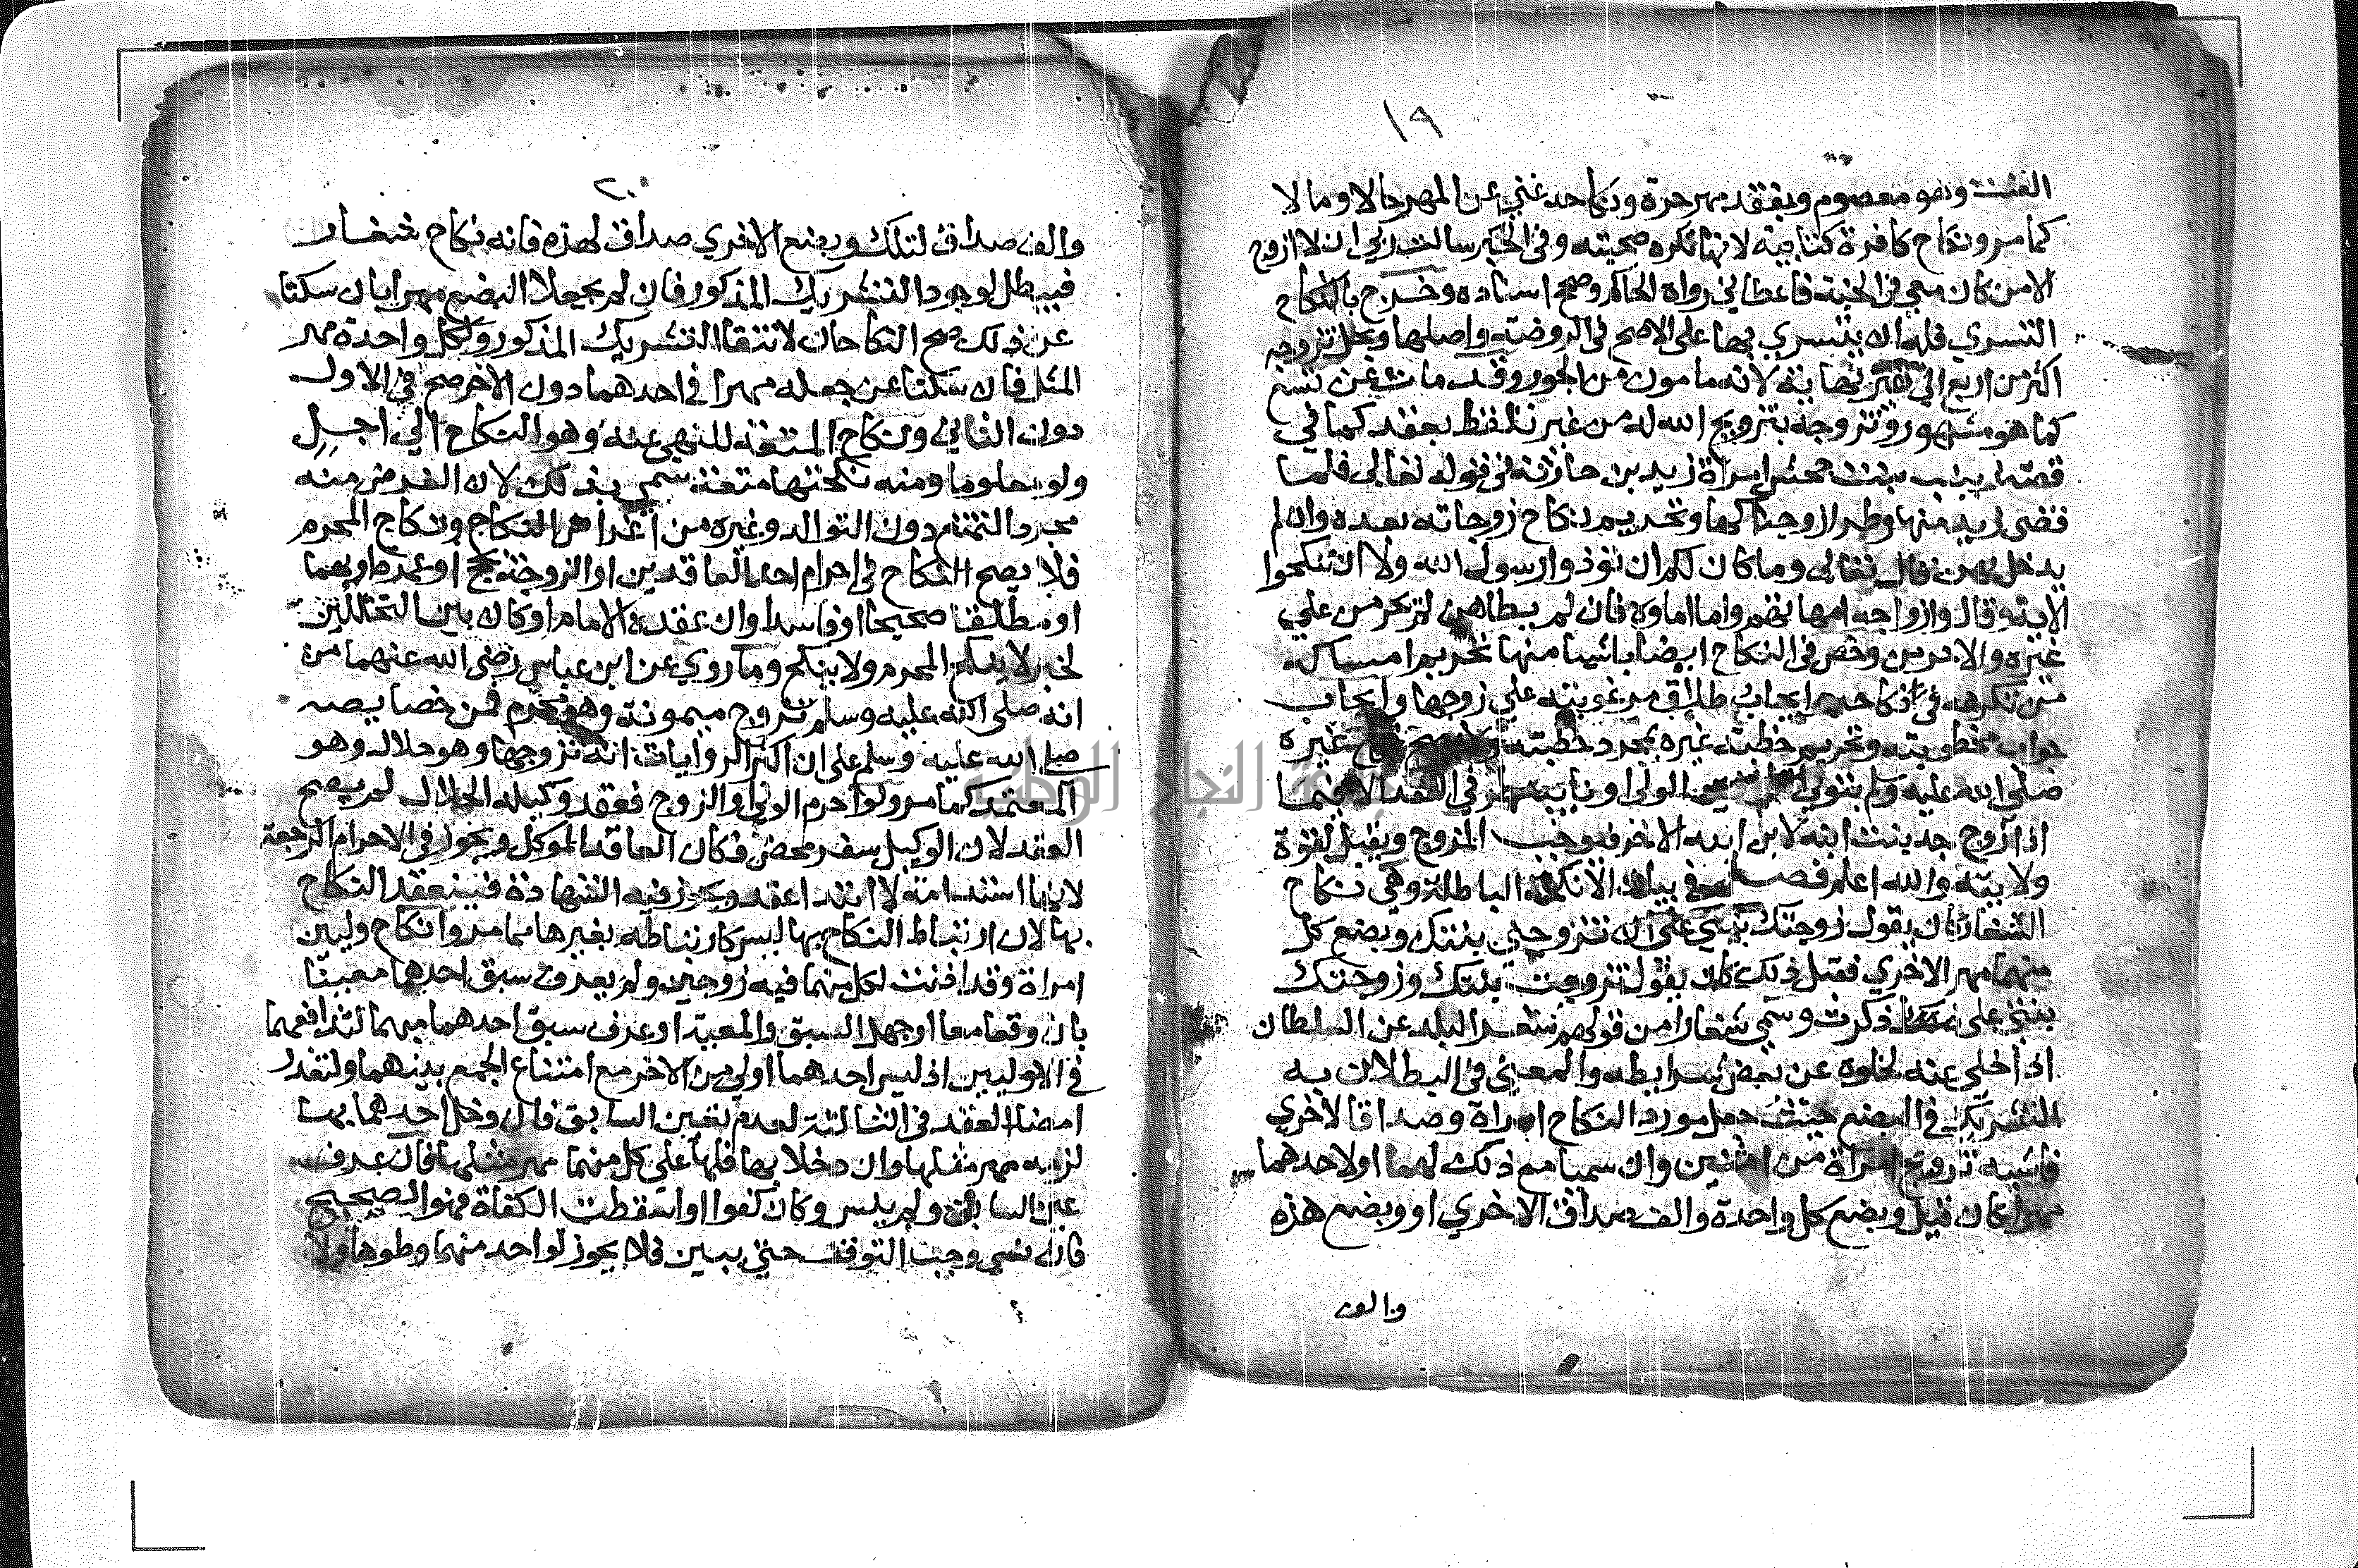 ١٩
العنت وهو معصوم وبفقد مهر حرة ونكاحه غني عن المهر حالا ومالا
كما مر ونكاح كافرة كتابية لانها تكره صحبته وفي الخبر سالت ربي ان لا ازوج
الا من كان معي في الجنة فاعطاني رواه الحاكم وصحح اسناده وخرج بالنكاح
التسري فله ان يتسري بها على الاصح في الروضة واصلها ويحل تزوجه
اكثر من اربع الى غير نهاية لانه مامون من الجور وقد مات عن تسع
كما هو مشهور وتزوجه بتزويج الله له من غير تلفظ بعقد كما في
قصة زينب بنت جحش امراة زيد بن حارثة في قوله تعالى فلما
قضى زيد منها وطرا زوجناكها وتحريم نكاح زوجاته بعده وان لم
يدخل بهن قال تعالى وما كان لكم ان توذوا رسول الله ولا ان تنكحوا
الاية قال وازواجه امهاتهم واما اماوه فان لم يطاهن لم تحرمن علي
غيره والا حرمن وخص في النكاح ايضا باشيا منها تحريم امساك
من تنكرهه في نكاحه وايجاب طلاق مرغوبته علي زوجها وايجاب
جواب مخطوبته وتحريم خطبة غيره بمجرد خطبته غيره
صلى الله عليه وسلم يتولى الولي او نايبه في العقد الا فيما
اذا زوج جد بنت ابنه لابن ابنه الاخر فيوجب المزوج ويقبل لقوة
ولايته والله اعلم فصل في بيان الانكحة الباطلة وهي نكاح
الشغار كان يقول زوجتك بنتي على ان تزوجني بنتك وبضع كل
منهما مهر الاخري فقبل ذلك كان يقول تزوجت بنتك وزوجتك
بنتي على ما ذكرت وسمي شغارا من قولهم شغر البلد عن السلطان
اذا خلي عنه لخلوه عن بعض شرايطه والمعني في البطلان به
التشريك في البضع حيث جعل مورد النكاح امراة وصداقا لاخري
فاشبه تزويج امراة من اثنين وان سميا مع ذلك لهما او لاحدهما
مهرا كان قيل وبضع كل واحدة والف صداق الاخري او وبضع هذه
والف
٢٠
والف صداق لتلك وبضع الاخري صداق لهذه فانه نكاح شغار
فيبطل لوجود التشريك المذكور فان لم يجعلا البضع مهرا بان سكتا
عن ذلك صح النكاحان لانتقا التشريك المذكور ولكل واحدة مهر
المثل فان سكتا عن جعله مهرا في احدهما دون الاخر صح في الاول
دون الثاني ونكاح المتعة للنهي عنه وهو النكاح الي اجل
ولو معلوما ومنه نكحتها متعة سمي بذلك لان الغرض منه
مجرد التمتع دون التوالد وغيره من اغراض النكاح ونكاح المحرم
فلا يصح النكاح في احرام احد العاقدين او الزوجة بحج او عمرة او بهما
او مطلقا صحيحا او فاسدا وان عقده الامام او كان بين التحللين
لخبر لا ينكح المحرم ولا ينكح وما روي عن ابن عباس رضى الله عنهما من
انه صلى الله عليه وسلم تزوج ميمونة وهو محرم فمن خصايصه
صلى الله عليه وسلم على ان اكثر الروايات انه تزوجها وهو حلال وهو
المعتمد كما مر ولو احرم الولي او الزوج فعقد وكيله الحلال لم يصح
العقد لان الوكيل سفير محض فكان العاقد الموكل ويجوز في الاحرام الرجعة
لانها استدامة لا ابتدا عقد ويجوز فيه الشهادة فينعقد النكاح
بها لان ارتباط النكاح بها ليس كارتباطه بغيرها مما مر وانكاح وليين
امراة وقد اذنت لكل منهما فيه زوجين ولم يعرف سبق احدهما معينا
بان وقعا معا او جهل السبق والمعية او عرف سبق احدهما مبهما لتدافعهما
في الاوليين اذ ليس احدهما اولى من الاخر مع امتناع الجمع بينهما ولتعذر
امضا العقد في الثالثة لعدم تعيين السابق فان دخل احدهما بها
لزمه مهر مثلها وان دخلا بها فلها على كل منهما مهر مثلها فان عرفت
عين السابق ولم ينس وكان كفوا او اسقطت الكفاة فهو الصحيح
فان نسي وجب التوقف حتي يبين فلا يجوز لواحد منهما وطوها ولا